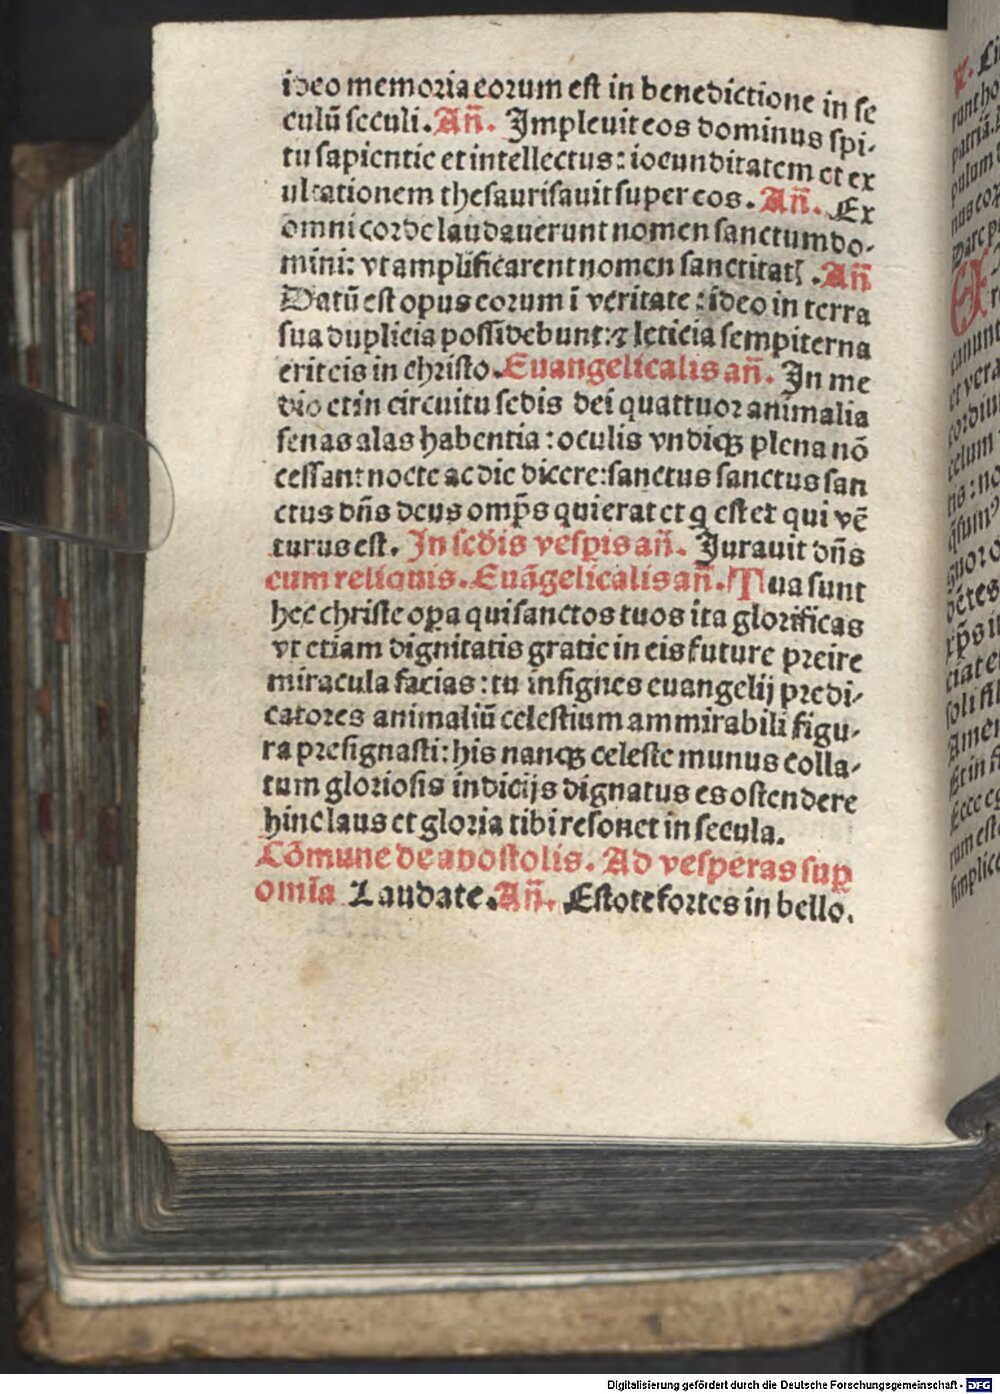 ideo memoria eorum est in benedictione in se
culũ seculi. Añ. Impleuit eos dominus spi-
tu sapientie et intellectus: iocunditatem et ex
ultationem thesaurisauit super eos. Añ. Ex
omni corde laudauerunt nomen sanctum do-
mini: vt amplificarent nomen sanctitatꝭ. Añ
Datũ est opus eorum ĩ veritate: ideo in terra
sua duplicia possidebunt: ⁊ leticia sempiterna
erit eis in christo. Euangelicalis añ. In me
dio et in circuitu sedis dei quattuor animalia
senas alas habentia: oculis vndiqꝫ plena nõ
cessant nocte ac die dicere: sanctus sanctus san
ctus dñs deus omp̃s qui erat et q est et qui vẽ
turus est. In scðis vesp̱is añ. Jurauit dñs
cum reliquis. Euãgelicalis añ. Tua sunt
hec christe oꝑa qui sanctos tuos ita glorificas
vt etiam dignitatis gratie in eis future preire
miracula facias: tu insignes euangelij predi-
catores animaliũ celestium ammirabili figu-
ra presignasti: his nanqꝫ celeste munus colla-
tum gloriosis indicijs dignatus es ostendere
hinc laus et gloria tibi resonet in secula.
Cõmune de apostolis. Ad vesperas suꝑ
om̃ia Laudate. Añ. Estote fortes in bello.
Digitalisierung gefördert durch die Deutsche Forschungsgemeinschaft - DFG